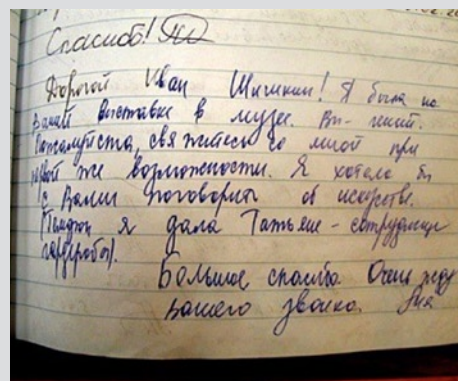 Спасибо!
Дорогой Иван Шишкин! Я была на
Вашей выставке в музее. Вы - гений.
Пожалуйста, свяжитесь со мной при
первой же возможности. Я хотела бы
с Вами поговорить об искусстве.
Телефон я дала Татьяне - сотруднице
гардероба).
Большое спасибо. Очень жду
вашего звонка.